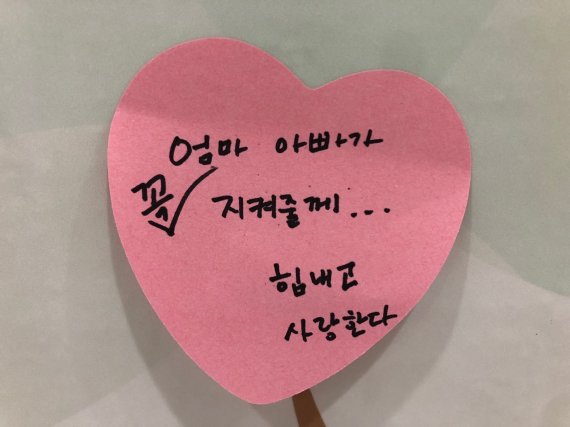 엄마 아빠가
꼭 지켜줄께...
힘내고
사랑한다